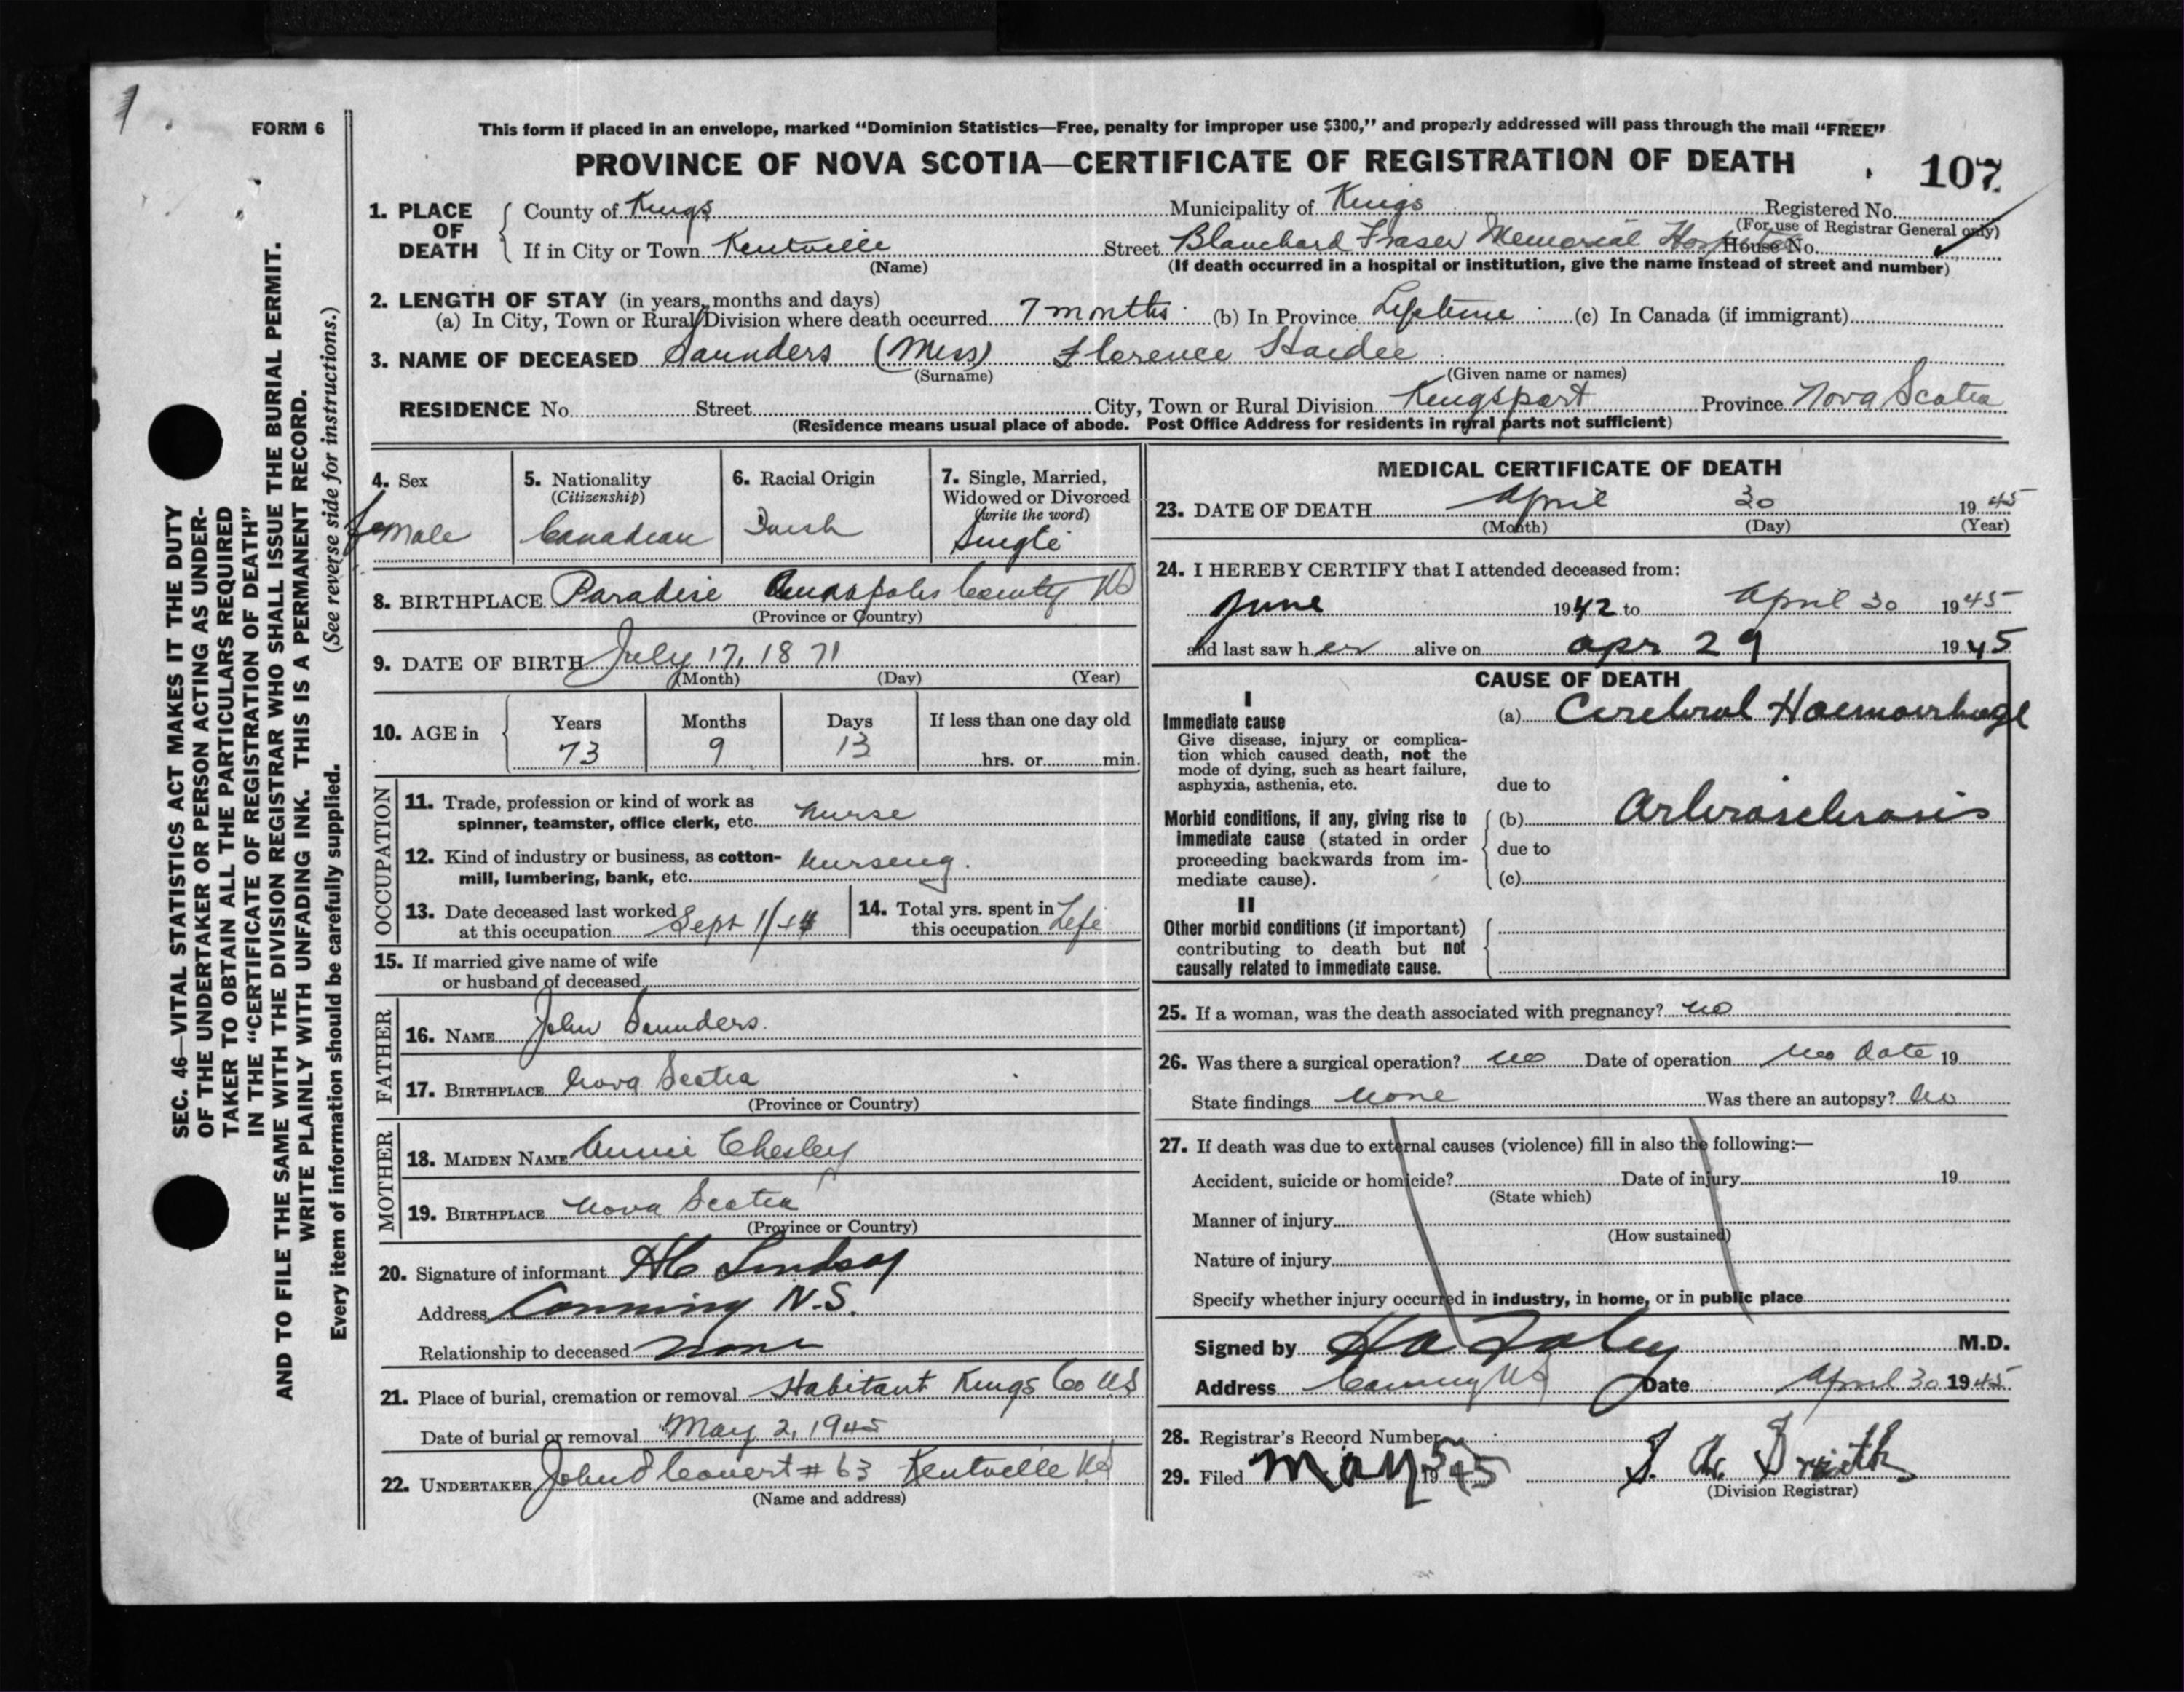 1
FORM 6
This form if placed in an envelope, marked “Dominion Statistics—Free, penalty for improper use $300,” and properly addressed will pass through the mail “FREE”
PROVINCE OF NOVA SCOTIA—CERTIFICATE OF REGISTRATION OF DEATH
107
1. PLACE OF DEATH { County of Kings Municipality of Kings Registered No.
(For use of Registrar General only)
If in City or Town Kentville Street Blanchard Fraser Memorial Hospital House No.
(Name) (If death occurred in a hospital or institution, give the name instead of street and number)
2. LENGTH OF STAY (in years, months and days)
(a) In City, Town or Rural Division where death occurred 7 months (b) In Province Lifetime (c) In Canada (if immigrant)
3. NAME OF DECEASED Saunders (Miss) Florence Haidee
(Surname) (Given name or names)
RESIDENCE No. Street City, Town or Rural Division Kingsport Province Nova Scotia
(Residence means usual place of abode. Post Office Address for residents in rural parts not sufficient)
4. Sex
female
5. Nationality
(Citizenship)
Canadian
6. Racial Origin
7. Single, Married,
Widowed or Divorced
(write the word)
Single
8. BIRTHPLACE Paradise Annapolis County NS
(Province or Country)
9. DATE OF BIRTH July 17, 1871
(Month) (Day) (Year)
10. AGE in { Years Months Days If less than one day old
73 9 13 hrs. or min.
OCCUPATION
11. Trade, profession or kind of work as
spinner, teamster, office clerk, etc. Nurse
12. Kind of industry or business, as cotton-
mill, lumbering, bank, etc. Nursing.
13. Date deceased last worked
at this occupation Sept 1/44
14. Total yrs. spent in
this occupation Life
15. If married give name of wife
or husband of deceased
FATHER
16. NAME John Saunders.
17. BIRTHPLACE Nova Scotia
(Province or Country)
MOTHER
18. MAIDEN NAME Annie Chesley
19. BIRTHPLACE Nova Scotia
(Province or Country)
20. Signature of informant HC Lindsay
Address Canning N.S.
Relationship to deceased None
21. Place of burial, cremation or removal Habitant Kings Co NS
Date of burial or removal May 2, 1945
22. UNDERTAKER John Covert # 63 Kentville NS
(Name and address)
MEDICAL CERTIFICATE OF DEATH
23. DATE OF DEATH April 30 1945
(Month) (Day) (Year)
24. I HEREBY CERTIFY that I attended deceased from:
June 1942 to April 30 1945
and last saw her alive on Apr 29 1945
CAUSE OF DEATH
I
Immediate cause (a) Cerebral Haemorrhage
Give disease, injury or complica-
tion which caused death, not the
mode of dying, such as heart failure,
asphyxia, asthenia, etc. due to
Morbid conditions, if any, giving rise to (b) Arteriosclerosis
immediate cause (stated in order
proceeding backwards from im- due to
mediate cause). (c)
II
Other morbid conditions (if important)
contributing to death but not
causally related to immediate cause.
25. If a woman, was the death associated with pregnancy? no
26. Was there a surgical operation? no Date of operation no date 19
State findings none Was there an autopsy? no
27. If death was due to external causes (violence) fill in also the following:—
Accident, suicide or homicide? Date of injury 19
(State which)
Manner of injury
(How sustained)
Nature of injury
Specify whether injury occurred in industry, in home, or in public place
Signed by M.D.
Address Canning NS Date April 30 1945
28. Registrar's Record Number
29. Filed May 5 1945
(Division Registrar)
SEC. 46—VITAL STATISTICS ACT MAKES IT THE DUTY
OF THE UNDERTAKER OR PERSON ACTING AS UNDER-
TAKER TO OBTAIN ALL THE PARTICULARS REQUIRED
IN THE “CERTIFICATE OF REGISTRATION OF DEATH”
AND TO FILE THE SAME WITH THE DIVISION REGISTRAR WHO SHALL ISSUE THE BURIAL PERMIT.
WRITE PLAINLY WITH UNFADING INK. THIS IS A PERMANENT RECORD.
Every item of information should be carefully supplied. (See reverse side for instructions.)